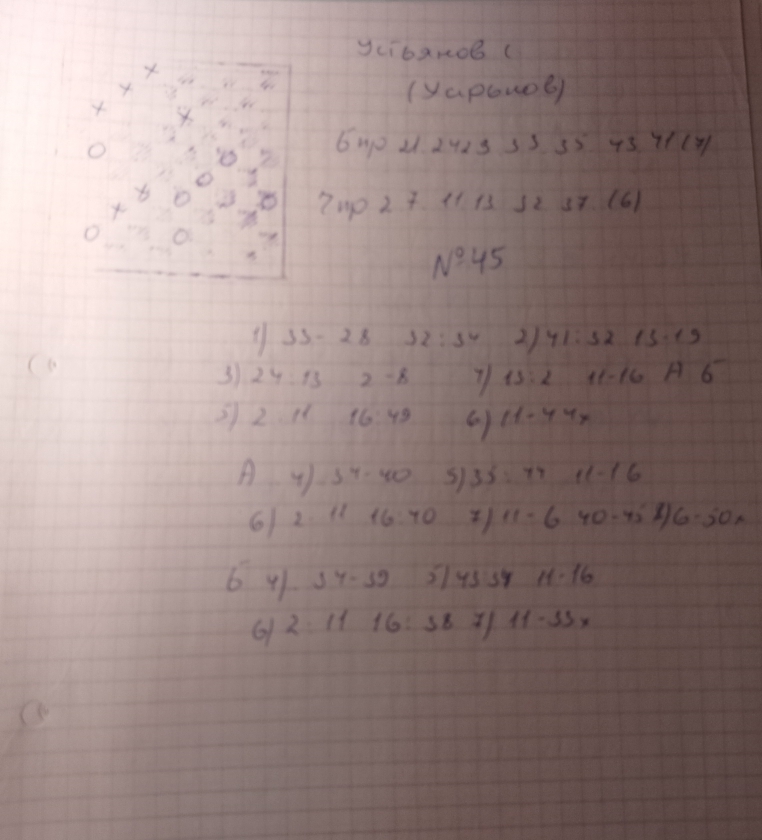 Устьянов С
(Харьков)
б пр 21 24 29 33 35 43 41 (7)
ч пр 2 7 11 13 32 37 (6)
№45
1) 33-28 32:34 2) 41:32 13-19
3) 24:13 2-8 4) 13:2 11-16 А Б
5) 2:11 16:49 6) 11-44x
А 4) 34-40 5) 35:44 11-16
6) 2:11 16:40 7) 11-6 40-45 8) 6-50x
Б 4) 34-39 5) 43:34 11-16
6) 2:11 16:38 7) 11-33x